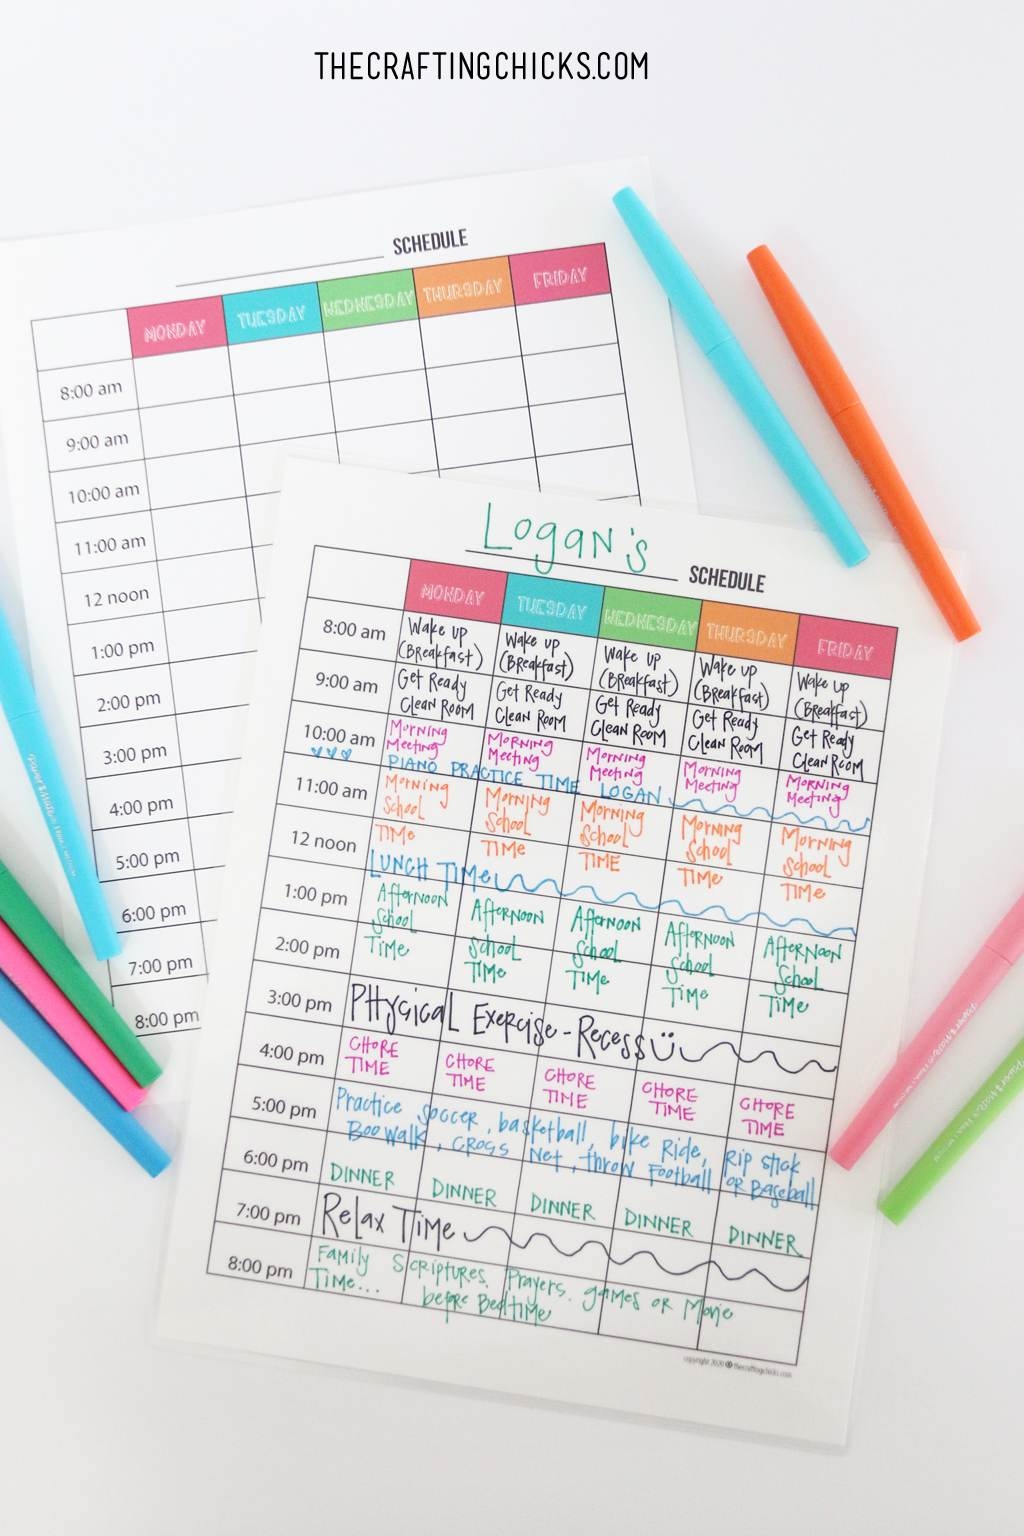 THECRAFTINGCHICKS.COM
SCHEDULE
MONDAY TUESDAY WEDNESDAY THURSDAY FRIDAY
8:00 am
9:00 am
10:00 am
11:00 am
12 noon
1:00 pm
2:00 pm
3:00 pm
4:00 pm
5:00 pm
6:00 pm
7:00 pm
8:00 pm
Logan's SCHEDULE
MONDAY TUESDAY WEDNESDAY THURSDAY FRIDAY
8:00 am Wake up Wake up Wake up Wake up Wake up
(Breakfast) (Breakfast) (Breakfast) (Breakfast) (Breakfast)
9:00 am Get Ready Get Ready Get Ready Get Ready Get Ready
Clean Room Clean Room Clean Room Clean Room Clean Room
10:00 am Morning Morning Morning Morning Morning
Meeting Meeting Meeting Meeting Meeting
PIANO PRACTICE TIME LOGAN
11:00 am Morning Morning Morning Morning Morning
School School School School School
12 noon TIME TIME TIME TIME TIME
LUNCH TIME
1:00 pm Afternoon Afternoon Afternoon Afternoon Afternoon
School School School School School
2:00 pm TIME TIME TIME TIME TIME
3:00 pm PHysical Exercise - Recess
4:00 pm CHORE CHORE CHORE CHORE CHORE
TIME TIME TIME TIME TIME
5:00 pm Practice soccer, basketball, bike Ride, Rip stick
Boo walk, CROSS Net, throw Football or Baseball
6:00 pm DINNER DINNER DINNER DINNER DINNER
7:00 pm Relax Time
8:00 pm Family Scriptures, Prayers, games or Movie
Time... before Bedtime
copyright 2020 thecraftingchicks.com